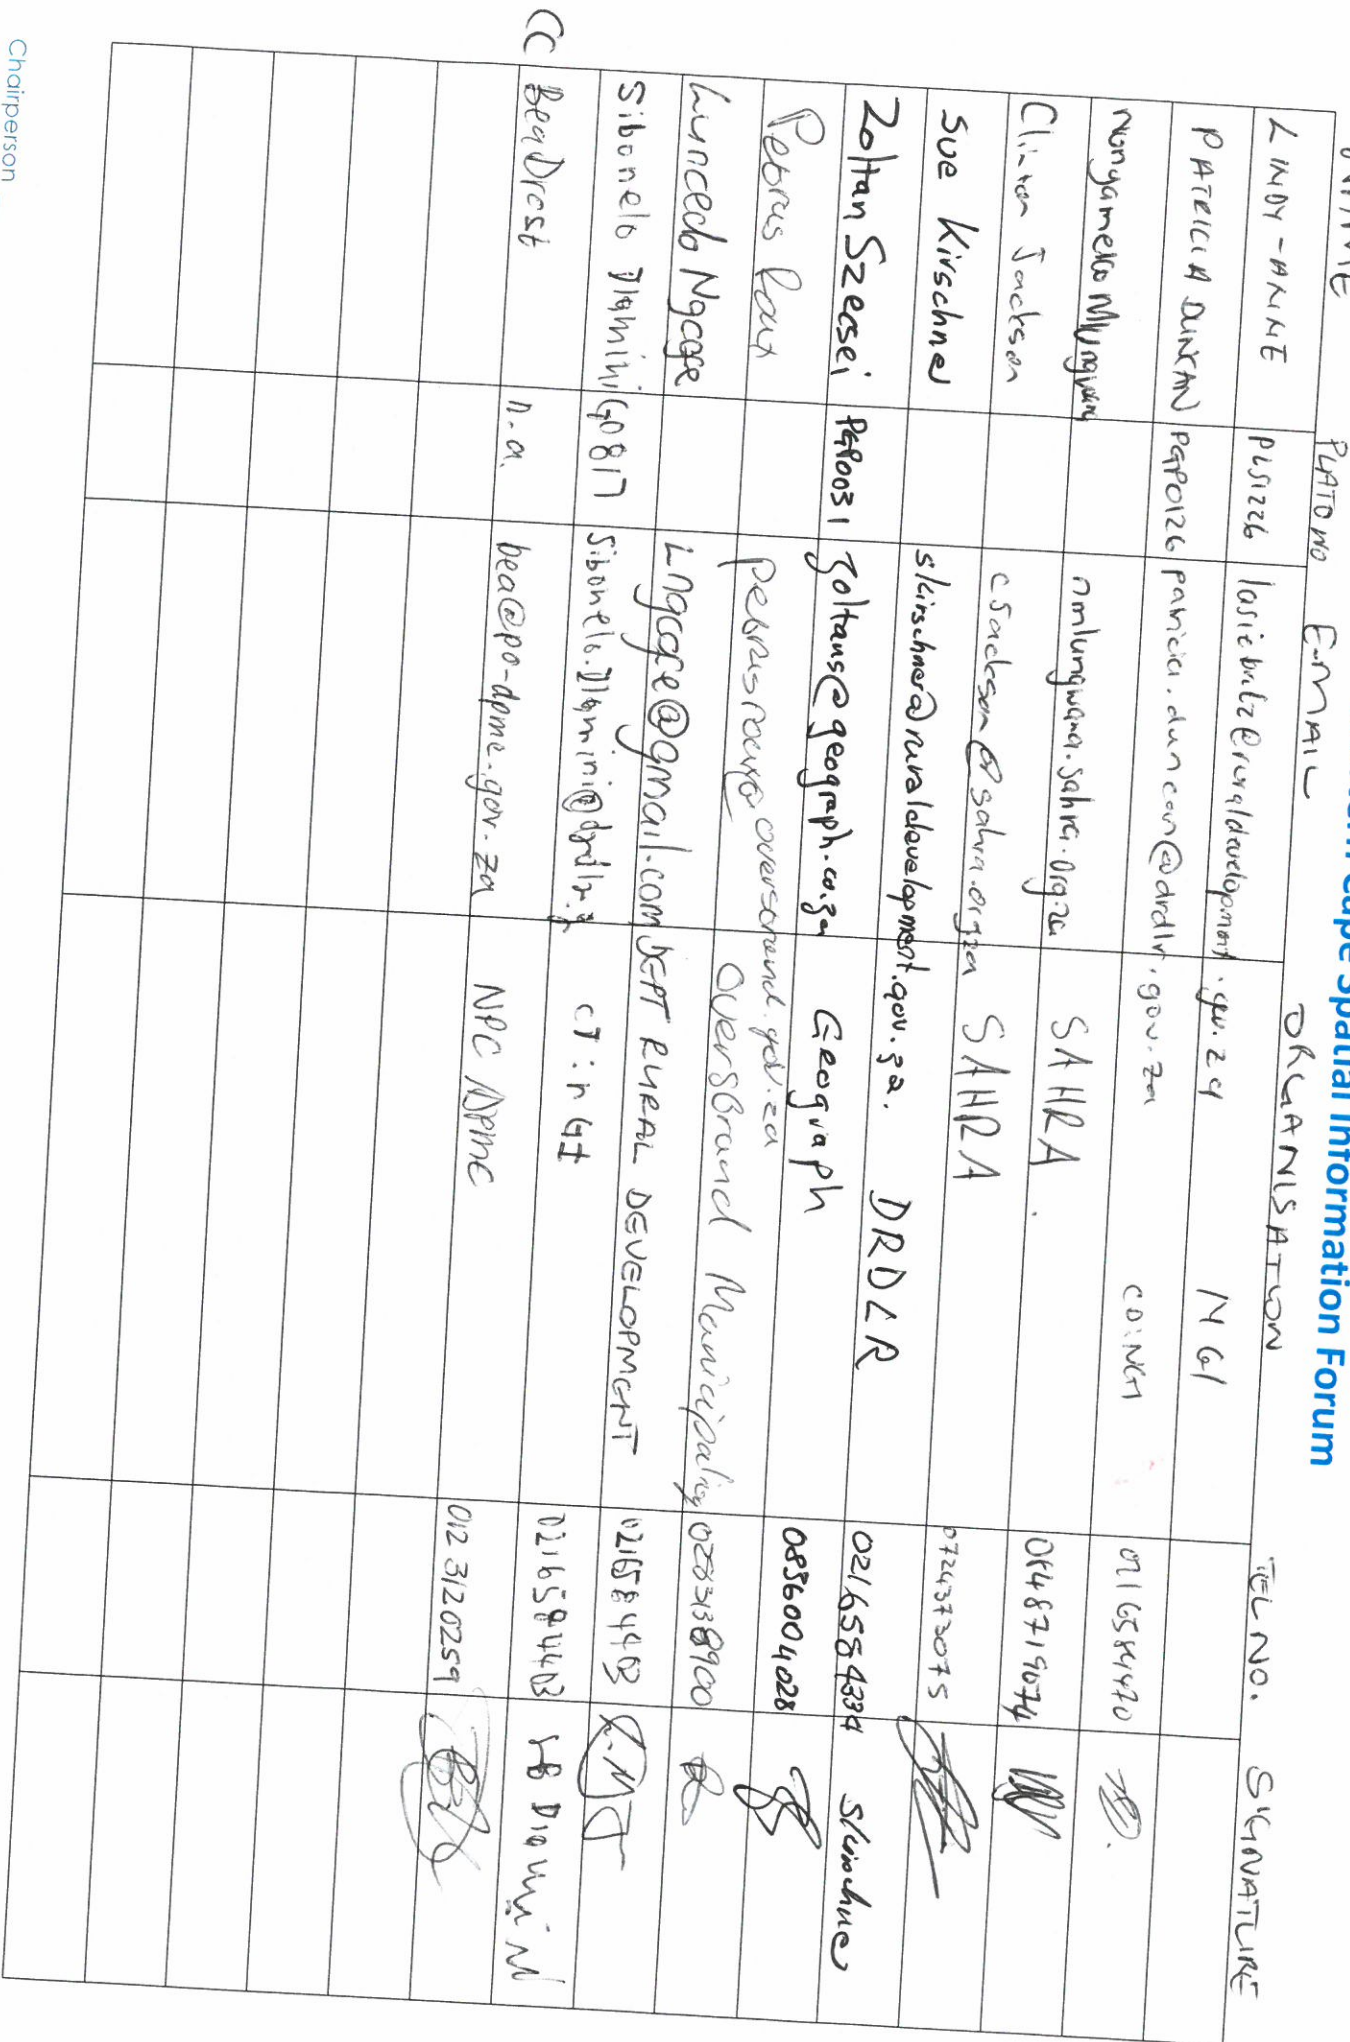 Cape Spatial Information Forum
PLATO NO E-MAIL ORGANISATION TEL NO. SIGNATURE
LINDY-ANNE PLS1226 .gov.za NGI
PATRICIA DUNCAN PGP0126 patricia.duncan@drdlr.gov.za CD:NGI 0216584470
nmlungwana.sahra.org.za SAHRA.
Clinton Jackson cjackson@sahra.org.za SAHRA 0724373075
Sue Kirschner skirschner@ruraldevelopment.gov.za. DRDLR 0216584334 Skirschner
Zoltan Szecsei PGP0031 zoltans@geograph.co.za Geograph 0836004028
Petrus Roux Overstrand Municipality 0283138900
Luncedo Ngcofe Lngcofe@gmail.com DEPT RURAL DEVELOPMENT 0216584403
Sibonelo Dlamini G0817 0216584403
CC Bea Drost n.a. bea@po-dpme.gov.za NPC DPME 012 3120259
Chairperson